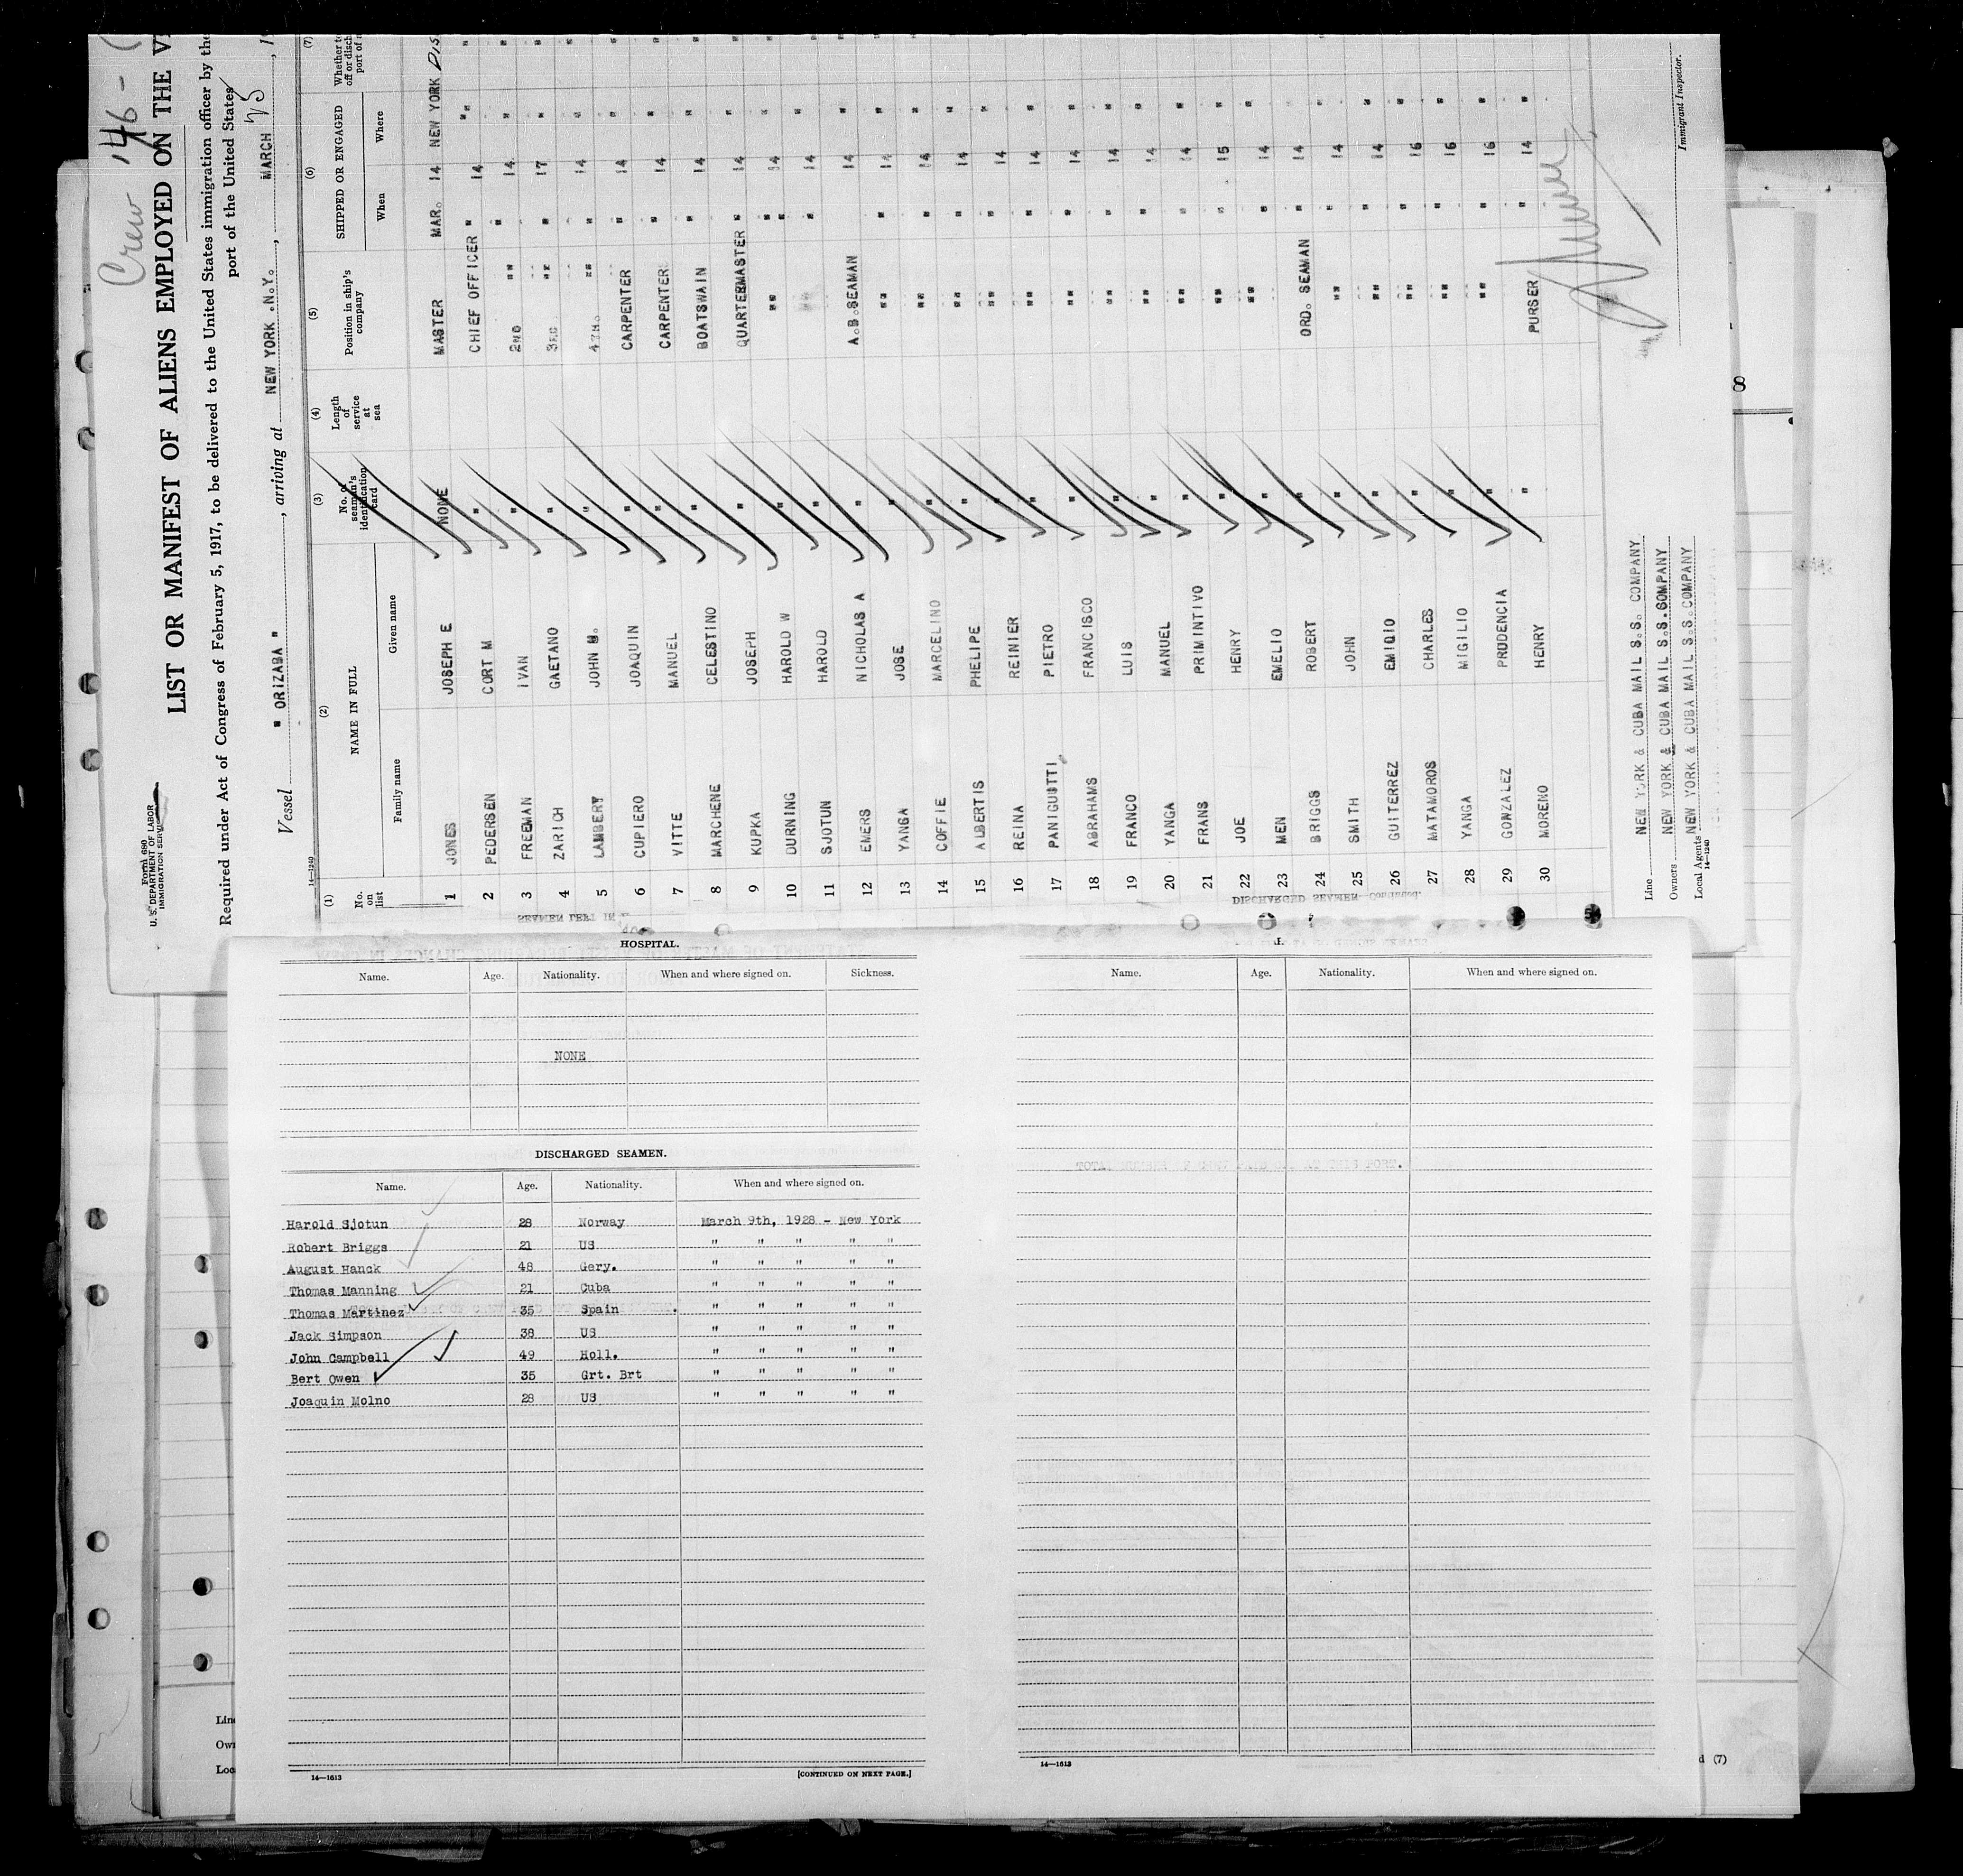 Crew 146 -
Form 680
U. S. DEPARTMENT OF LABOR
IMMIGRATION SERVICE
LIST OR MANIFEST OF ALIENS EMPLOYED ON THE
Required under Act of Congress of February 5, 1917, to be delivered to the United States immigration officer by the
port of the United States
Vessel " ORIZABA ", arriving at NEW YORK .N.Y., MARCH 25, 1
14—1240
(1) (2) (3) (4) (5) (6) (7)
No. on list NAME IN FULL No. of seaman's identification card Length of service at sea Position in ship's company SHIPPED OR ENGAGED
Family name Given name When Where
1 JONES JOSEPH E NONE MASTER MAR. 14 NEW YORK
2 PEDERSEN CORT M " CHIEF OFFICER " 14 "
3 FREEMAN IVAN " 2ND " " 14 "
4 ZARICH GAETANO " " " 17 "
5 LAMBERT JOHN " " " 14 "
6 CUPIERO JOAQUIN " CARPENTER " 14 "
7 VITTE MANUEL " CARPENTER " 14 "
8 MARCHENE CELESTINO " BOATSWAIN " 14 "
9 KUPKA JOSEPH " QUARTERMASTER " 14 "
10 DURNING HAROLD W " " " 14 "
11 SJOTUN HAROLD " " " 14 "
12 EMERS NICHOLAS A " A.B.SEAMAN 14 "
13 YANGA JOSE " " " 14 "
14 COFFIE MARCELINO " " " 14 "
15 ALBERTIS PHELIPE " " " 14 "
16 REINA REINIER " " " 14 "
17 PANIGUTTI PIETRO " " " 14 "
18 ABRAHAMS FRANCISCO " " " 14 "
19 FRANCO LUIS " " " 14 "
20 YANGA MANUEL " " " 14 "
21 FRANS PRIMINTIVO " " " 14 "
22 JOE HENRY " " " 15 "
23 MEN EMELIO " " " 14 "
24 BRIGGS ROBERT " ORD. SEAMAN " 14 "
25 SMITH JOHN " " " 14 "
26 GUITERREZ EMIDIO " " " 14 "
27 MATAMOROS CHARLES " " " 16 "
28 YANGA MIGILIO " " " 16 "
29 GONZALEZ PRUDENCIA " " " 16 "
30 MORENO HENRY " PURSER " 14 "
Line NEW YORK & CUBA MAIL S.S. COMPANY
Owners NEW YORK & CUBA MAIL S.S.COMPANY
Local Agents NEW YORK & CUBA MAIL S.S.COMPANY
14—1240
Immigrant Inspector.
8
HOSPITAL.
Name. Age. Nationality. When and where signed on. Sickness.
NONE
DISCHARGED SEAMEN.
Name. Age. Nationality. When and where signed on.
Harold Sjotun 28 Norway March 9th, 1928 - New York
Robert Briggs 21 US " " " " "
August Hanck 48 Gery. " " " " "
Thomas Manning 21 Cuba " " " " "
Thomas Martinez 35 Spain " " " " "
Jack Simpson 38 US " " " " "
John Campbell 49 Holl. " " " " "
Bert Owen 35 Grt. Brt " " " " "
Joaquin Molno 28 US " " " " "
14—1613
[CONTINUED ON NEXT PAGE.]
Name. Age. Nationality. When and where signed on.
14—1613
Line
d (7)